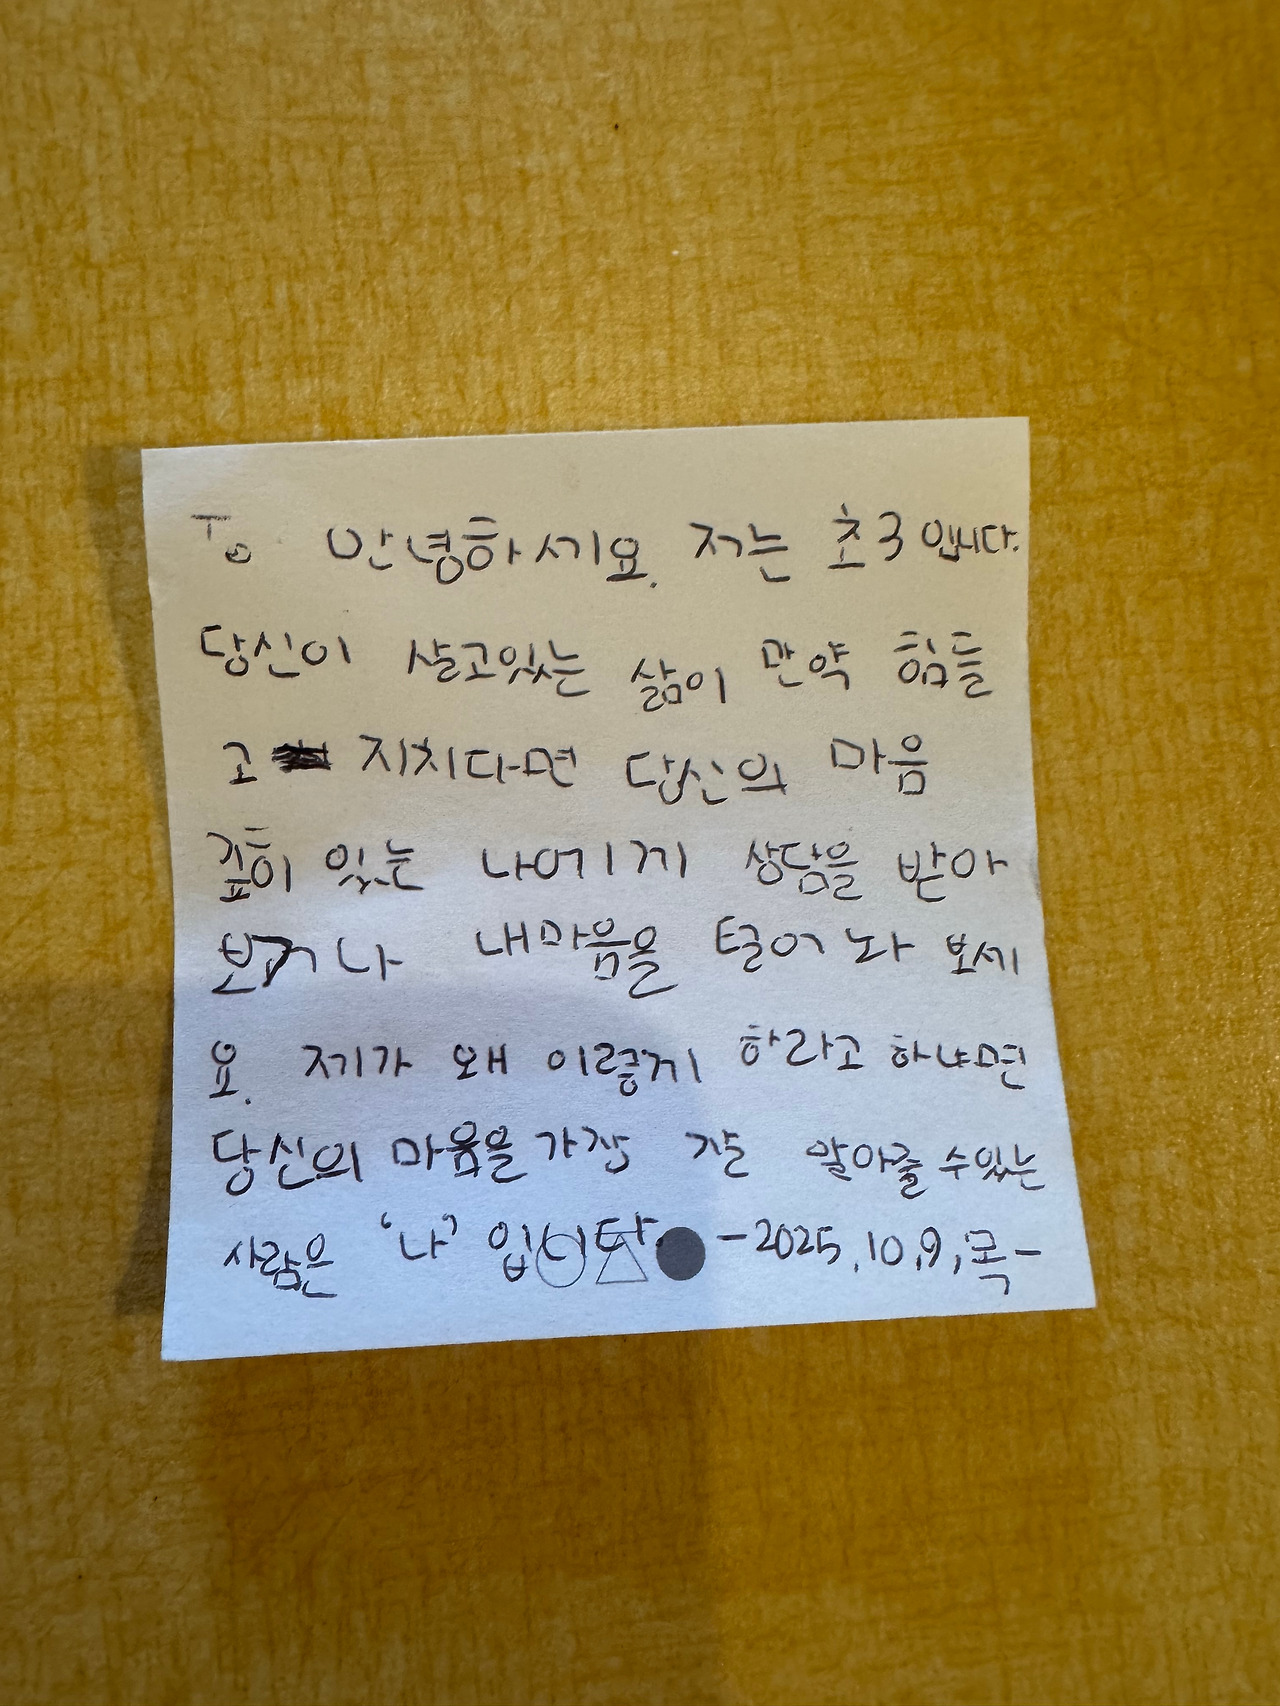 To 안녕하세요. 저는 초3입니다.
당신이 살고있는 삶이 만약 힘들
고 지치다면 당신의 마음
깊히 있는 나에게 상담을 받아
보거나 내마음을 털어 놔 보세
요. 제가 왜 이렇게 하라고 하냐면
당신의 마음을 가장 잘 알아줄 수있는
사람은 '나' 입니다. -2025.10.9.목-